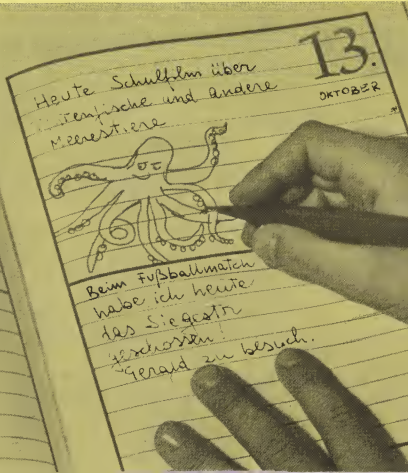 13.
OKTOBER
Heute Schulfilm über
Tintenfische und andere
Meerestiere
Beim Fußballmatch
habe ich heute
das Siegestor
geschossen!
Gerald zu besuch.